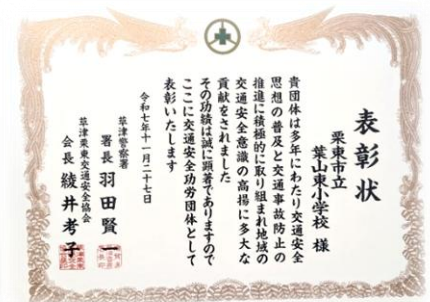 表彰状
栗東市立
葉山東小学校 様
貴団体は多年にわたり交通安全
思想の普及と交通事故防止の
推進に積極的に取り組まれ地域の
交通安全意識の高揚に多大な
貢献をされました
その功績は誠に顕著でありますので
ここに交通安全功労団体として
表彰いたします
令和七年十一月二十七日
草津警察署
署長 羽田賢一
草津栗東交通安全協会
会長 綾井考子